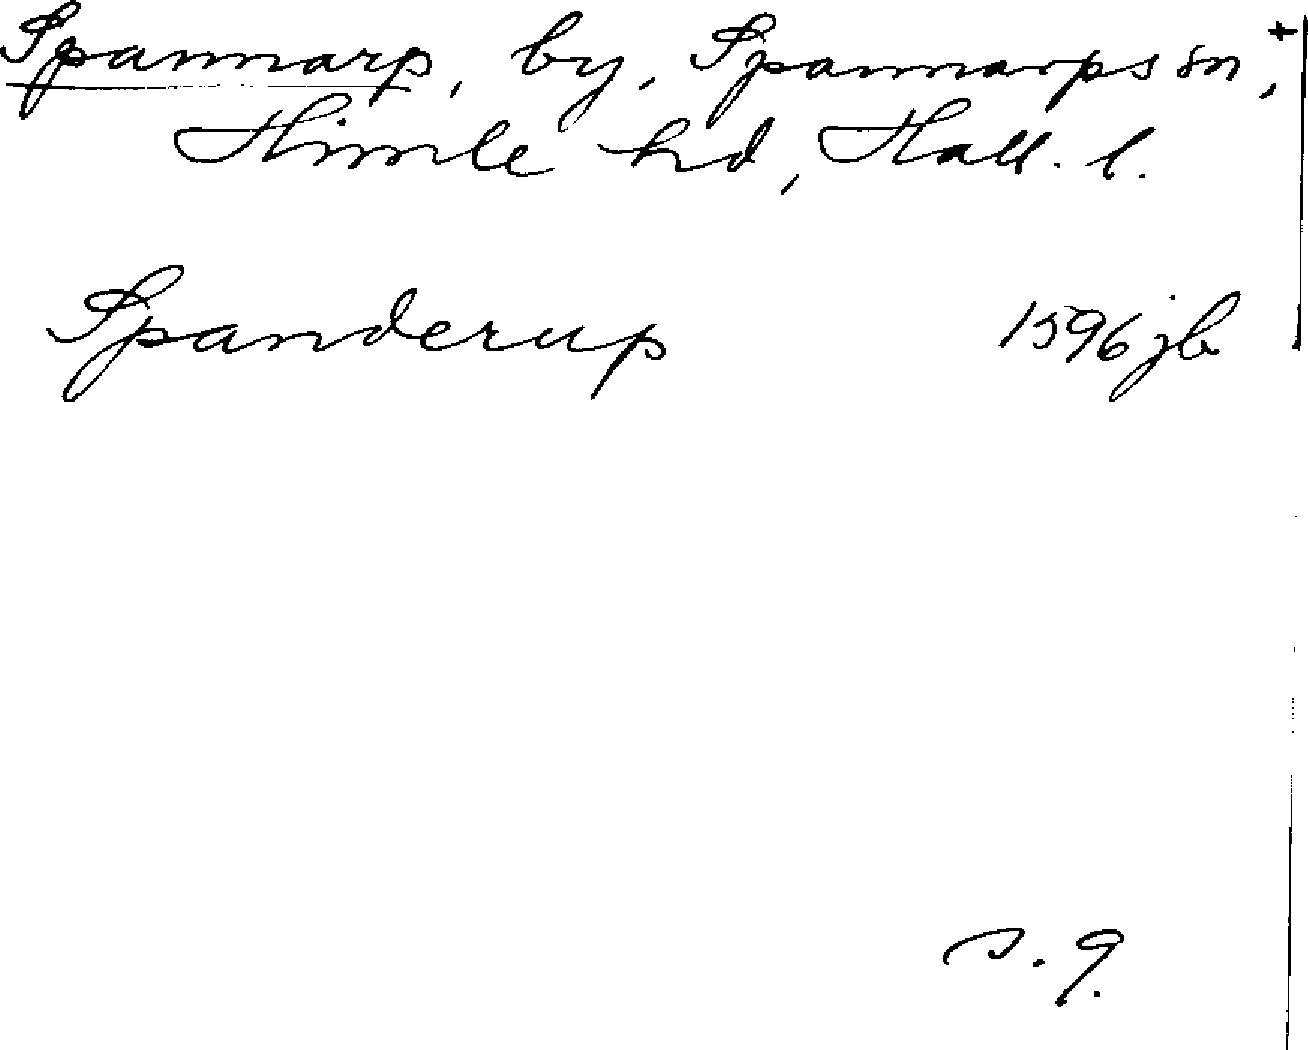 Spannarp, by, Spannarps sn, +
Himle hd, Hall. l.
Spanderup 1596 jb
s. 9.